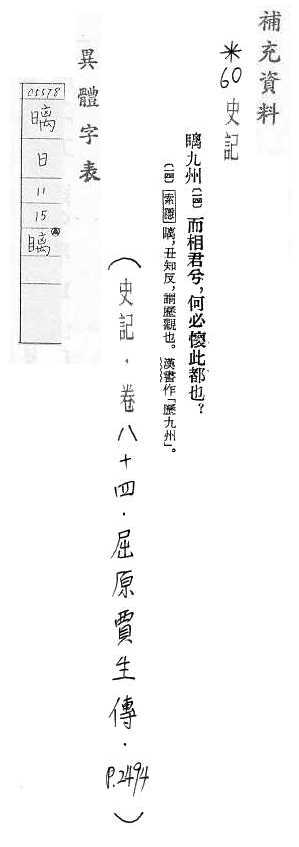 補充資料
＊60 史記
瞝九州〔一四〕而相君兮，何必懷此都也？
〔一四〕索隱 瞝，丑知反，謂歷觀也。漢書作「歷九州」。
（史記．卷八十四．屈原賈生傳．P.2494）
異體字表
C5578
瞝
日
11
15
瞝